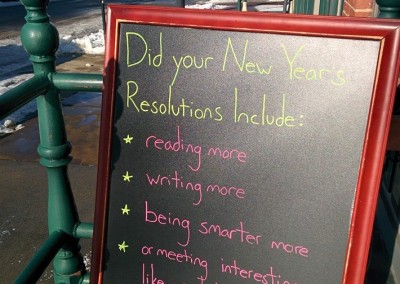 Did your New Years
Resolutions Include:
* reading more
* writing more
* being smarter more
* or meeting interesting
like